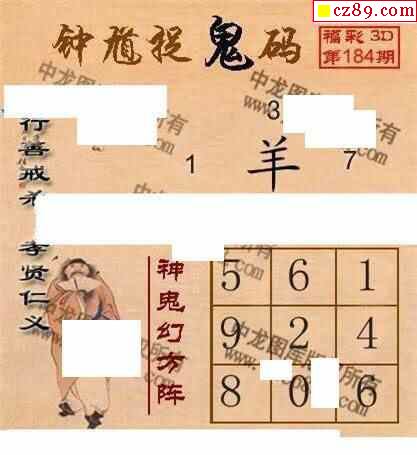 cz89.com
钟馗捉鬼码
福彩3D
第184期
行善戒杀
孝贤仁义
3
1
羊
7
神鬼幻方阵
5 6 1
9 2 4
8 0 6